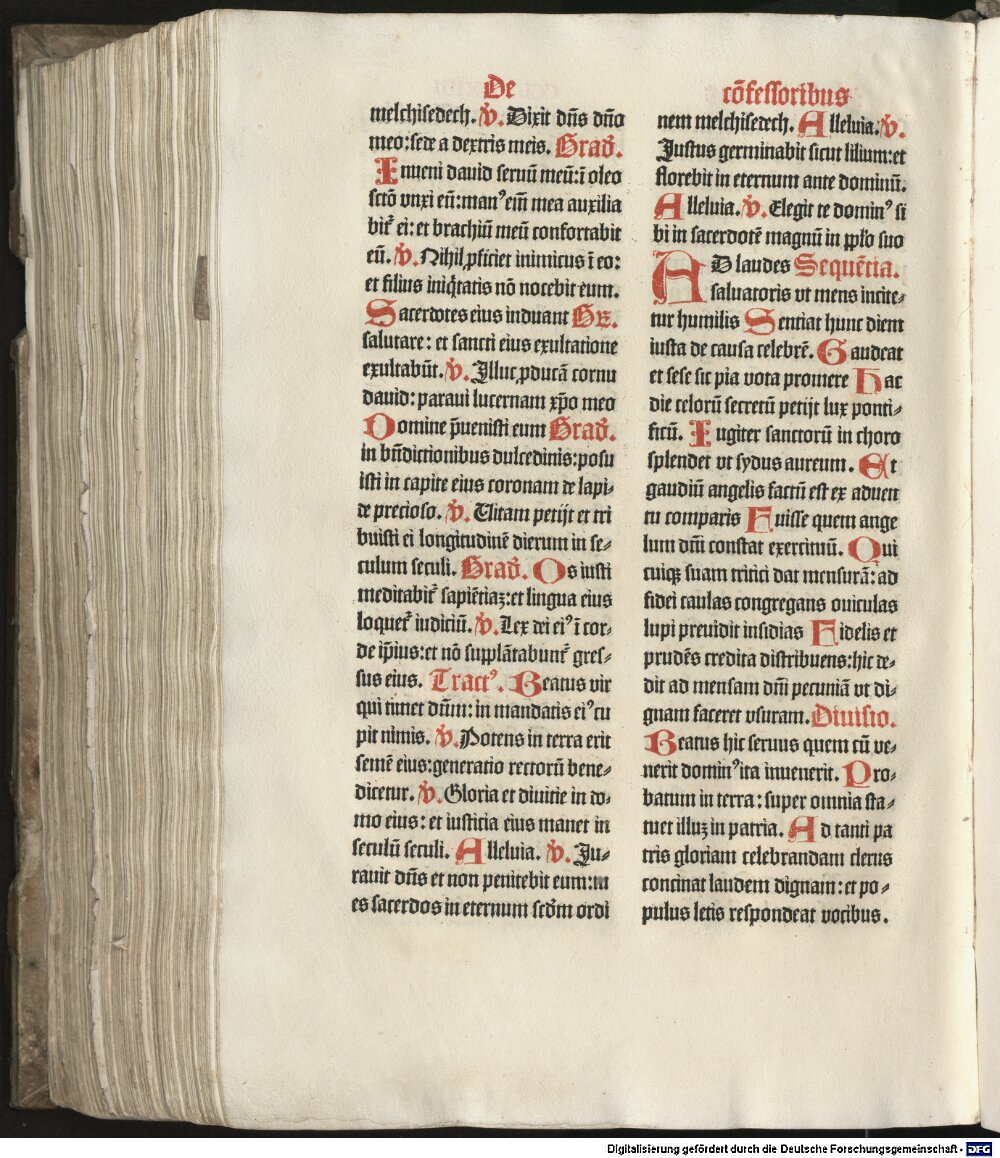 De
cōfessoribus
melchisedech. v̄. Dixit dn̄s dn̄o
meo: sede a dextris meis. Grad̄.
Inueni dauid seruū meū: ī oleo
sctō vnxi eū: manꝰ eīm mea auxilia
bit̄ ei: et brachiū meū confortabit
eū. v̄. Nihil ꝓficiet inimicus ī eo:
et filius iniq̄tatis nō nocebit eum.
Sacerdotes eius induant Gr̄.
salutare: et sancti eius exultatione
exultabūt. v̄. Illuc ꝓducā cornu
dauid: paraui lucernam xp̄o meo
Domine p̄uenisti eum Grad̄.
in bn̄dictionibus dulcedinis: posu
isti in capite eius coronam de lapi⸗
de precioso. v̄. Uitam petijt et tri
buisti ei longitudinē dierum in se⸗
culum seculi. Grad̄. Os iusti
meditabit̄ sapiētiaz: et lingua eius
loquet̄ iudiciū. v̄. Lex dei eiꝰ ī cor⸗
de ip̄ius: et nō supplātabunt̄ gres⸗
sus eius. Tractꝰ. Beatus vir
qui timet dn̄m: in mandatis eiꝰ cu
pit nimis. v̄. Potens in terra erit
semē eius: generatio rectorū bene⸗
dicetur. v̄. Gloria et diuitie in do⸗
mo eius: et iusticia eius manet in
seculū seculi. Alleluia. v̄. Ju⸗
rauit dn̄s et non penitebit eum: tu
es sacerdos in eternum scdm̄ ordi
nem melchisedech. Alleluia. v̄.
Justus germinabit sicut lilium: et
florebit in eternum ante dominū.
Alleluia. v̄. Elegit te dominꝰ si
bi in sacerdotē magnū in pp̄lo suo
AD laudes Sequētia.
saluatoris vt mens incite⸗
tur humilis Sentiat hunc diem
iusta de causa celebrē. Gaudeat
et sese sic pia vota promere Hac
die celorū secretū petijt lux ponti⸗
ficū. Iugiter sanctorū in choro
splendet vt sydus aureum. Et
gaudiū angelis factū est ex aduen
tu comparis Fuisse quem ange
lum dn̄i constat exercituū. Qui
cuiqꝫ suam tritici dat mensurā: ad
fidei caulas congregans ouiculas
lupi preuidit insidias Fidelis et
prudēs credita distribuens: hic de⸗
dit ad mensam dn̄i pecuniā vt di⸗
gnam faceret vsuram. Diuisio.
Beatus hic seruus quem cū ve⸗
nerit dominꝰ ita inuenerit. Pro⸗
batum in terra: super omnia sta⸗
tuet illuz in patria. Ad tanti pa
tris gloriam celebrandam clerus
concinat laudem dignam: et po⸗
pulus letis respondeat vocibus.
Digitalisierung gefördert durch die Deutsche Forschungsgemeinschaft - DFG